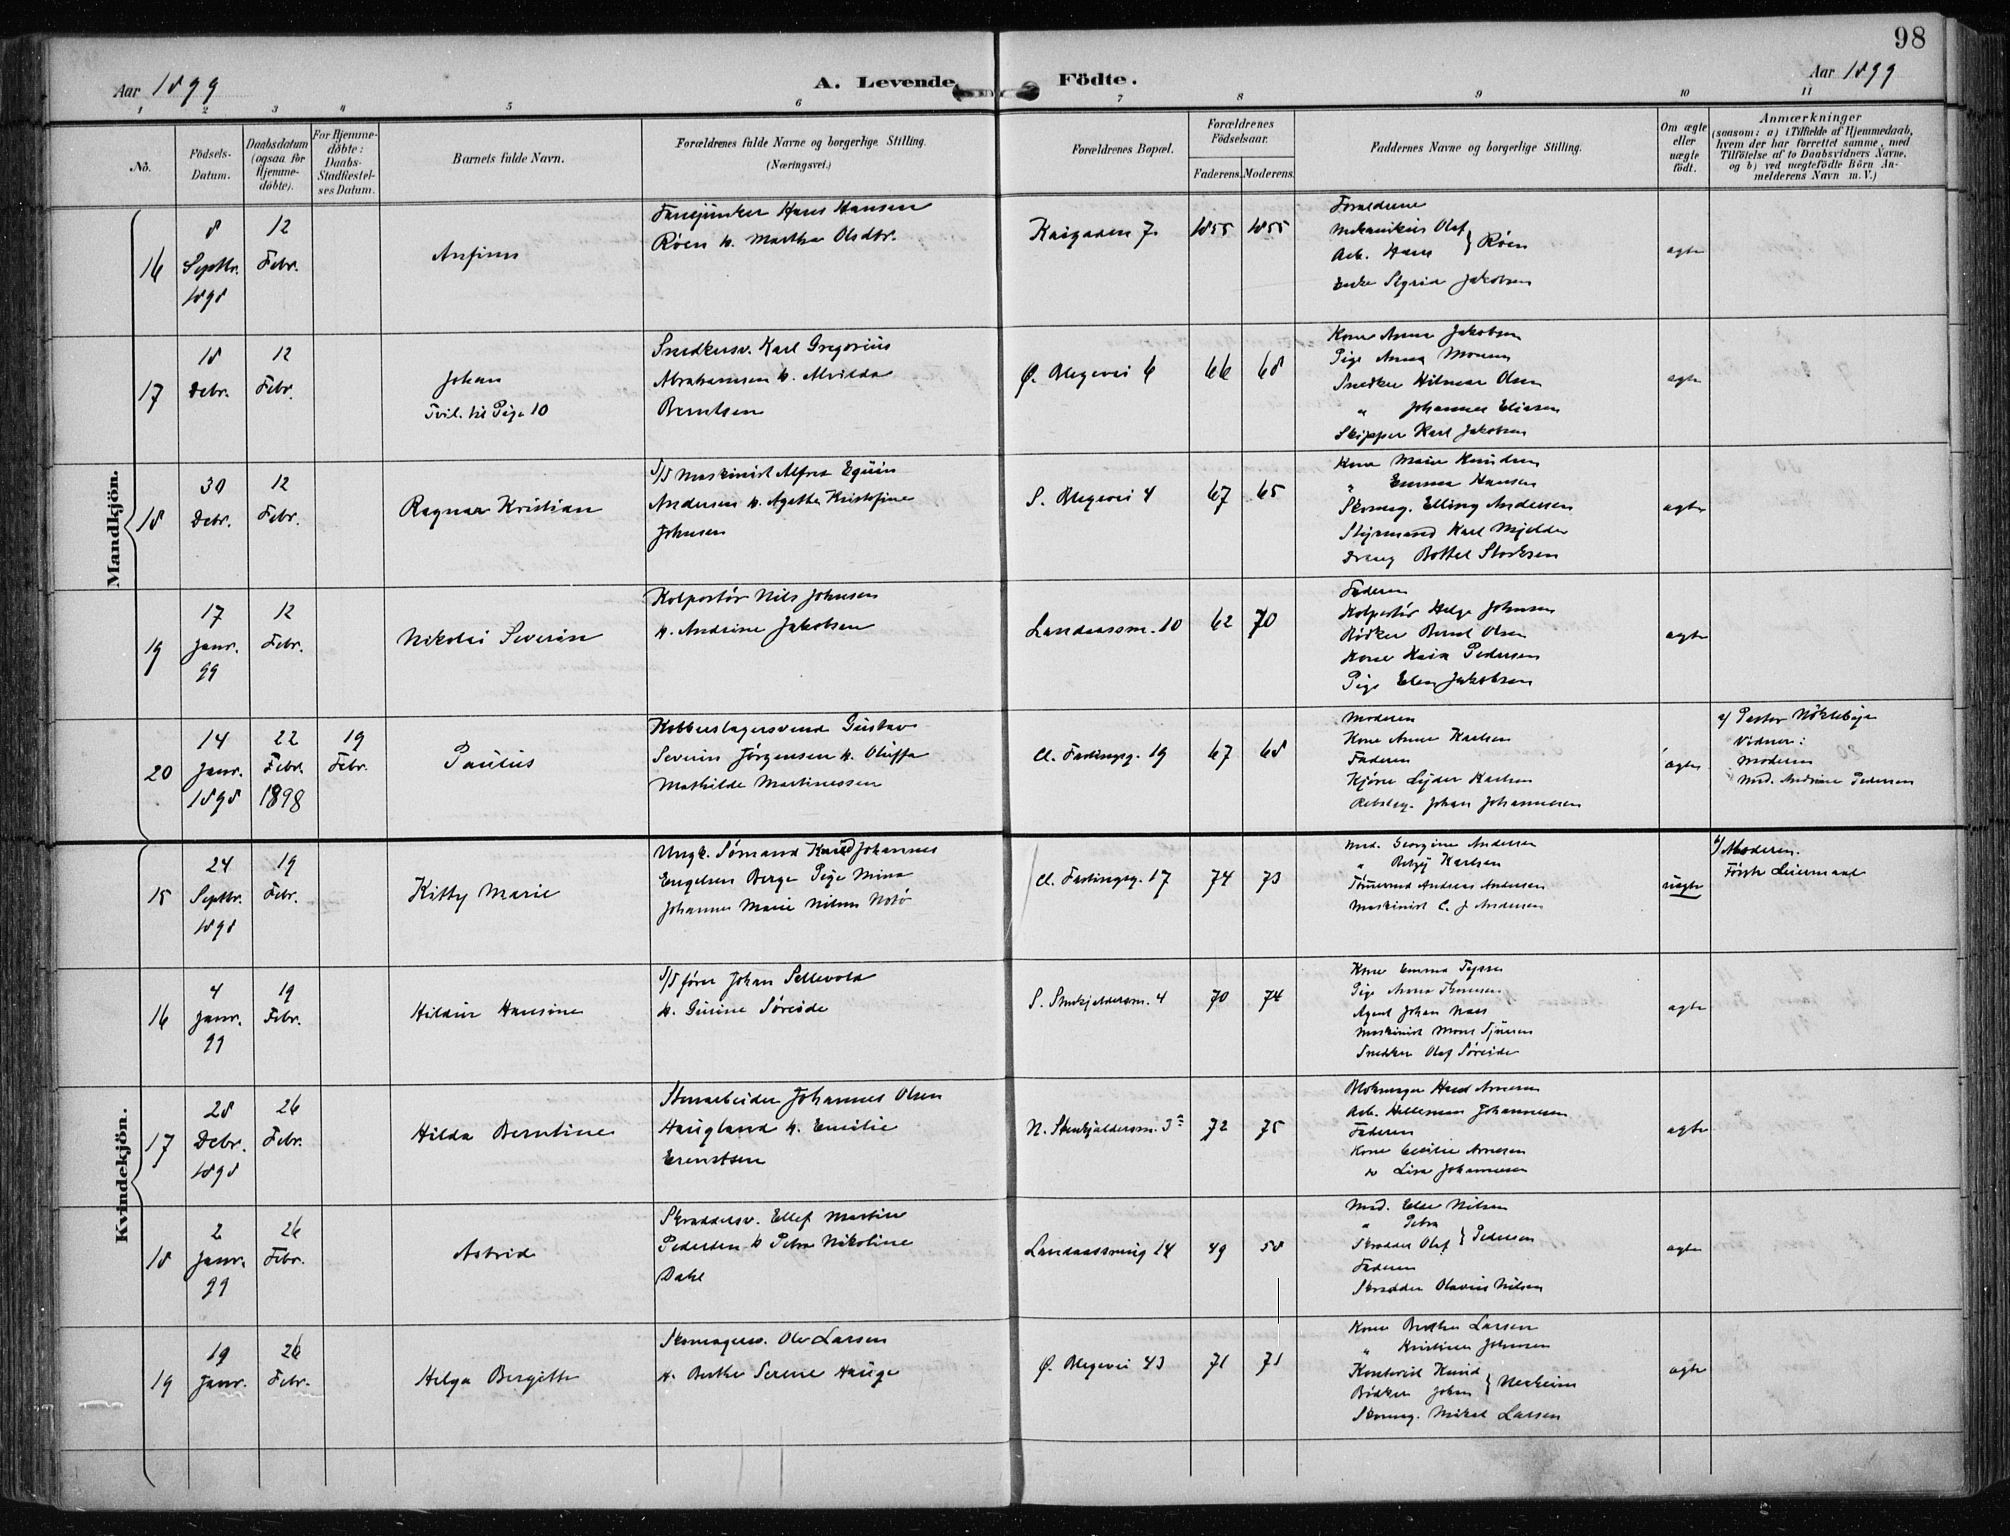 98
Aar 1899
A. Levende Födte.
Aar 1899
1 2 3 4 5 6 7 8 9 10 11
No.
Födsels-
Datum.
Daabsdatum
(ogsaa for
Hjemme-
döbte).
For Hjemme-
döbte:
Daabs-
Stadfæstel-
ses Datum.
Barnets fulde Navn.
Forældrenes fulde Navne og borgerlige Stilling.
(Næringsvei.)
Forældrenes Bopæl.
Forældrenes
Födselsaar.
Faderens. Moderens.
Faddernes Navne og borgerlige Stilling.
Om ægte
eller
uægte
födt.
Anmærkninger
(saasom: a) i Tilfælde af Hjemmedaab,
hvem der har forrettet samme, med
Tilföielse af to Daabsvidners Navne,
og b) ved uægtefödte Börn An-
melderens Navn m. V.)
Mandkjön.
16
8
Septbr.
1898
12
Febr.
Hans Hansen
Røen h. Martha Olsdtr.
Kaigaden 7.
1855 1855
Forældrene
Mekanikus Olaf
Arb. Hans } Røen
Enke Sigrid Jakobsen
ægte
17
18
Debr.
12
Febr.
Johan
Tvil. til Pige 10
Snedkersv. Karl Gregorius
Abrahamsen h. Alvilda
Berntsen
Ø. Blegevei 6
66 68
Kone Anna Jakobsen
Pige Anna Monsen
Snedker Hilmar Olsen
" Johannes Eliasen
Skipper Karl Jakobsen
ægte
18
30
Debr.
12
Febr.
Ragnar Kristian
S/S Maskinist Alfred
Andersen h. Agathe Kristofine
Johnsen
S. Blegevei 4
67 65
Kone Marie Knudsen
" Emma Hansen
Skomag. Elling Andersen
Styrmand Karl Mjelde
Dreng Bottel Storksen
ægte
19
17
Janr.
99
12
Febr.
Nikolai Severin
Kolportör Nils Johnsen
h. Andrine Jakobsen
Landaassm. 10
62 70
Faderen
Kolportör Helge Johnsen
Bödker Bernt Olsen
Kone Pedersen
Pige Elen Jakobsen
ægte
20
14
Janr.
1898
22
Febr.
1898
19
Febr.
Paulus
Kobberslagersvend Gustav
Severin Jørgensen h. Oluffa
Mathilde Martinessen
Cl. Fastingsg. 19
67 68
Moderen
Kone Anne Karlsen
Faderen
Kjöre Lyder Karlsen
Rebslag. Johan Johannesen
ægte
a/ Pastor Nöklebye
Vidner:
Moderen
Md. Andrine Pedersen
Kvindekjön.
15
24
Septbr.
1898
19
Febr.
Kitty Marie
Ungk. Sømand Knud Johannes
Engelsen Berge Pige Mina
Johanne Marie Nilsen
Cl. Fastingsg. 17
74 73
Md. Georgine Andersen
" Betzy Karlsen
Tömermd Andreas Andersen
Maskinist C. J Andersen
uægte
b/ Moderen.
Förste Leiermaal
16
4
Janr.
99
19
Febr.
Hildur Hansine
S/S förer Johan Sellevold
h. Gurine Søreide
S. Stenkjeldersm. 4
70 74
Kone Emma
Pige Anna
Agent Johan Næss
Maskinist Mons Sjursen
Snedker Olaf Søreide
ægte
17
28
Debr.
1898
26
Febr.
Hilda Berntine
Stenarbeider Johannes Olsen
Haugland h. Emilie
Erentsen
N. Stenkjeldersm. 3
72 75
Arnesen
Arb. Johannesen
Faderen
Kone Cecilie Arnesen
" Lisa Johannesen
ægte
18
2
Janr.
99
26
Febr.
Astrid
Skræddersv. Ellef Martin
Pedersen h Petra Nikoline
Dahl
Landaassving 14
49 58
Md. Elde Nilsen
" Petra
Skrædder Olaf } Pedersen
Faderen
Skrædder Olavus Nilsen
ægte
19
19
Janr.
26
Febr.
Helga Bergitte
Skomagersv. Ole Larsen
h. Berthe Serene Hauge
Ø. Blegevei 43
71 71
Kone Berthe Larsen
" Kristine Johnsen
Kontorist Knud
Bödker Johan }
Skomag. Mikal Larsen
ægte